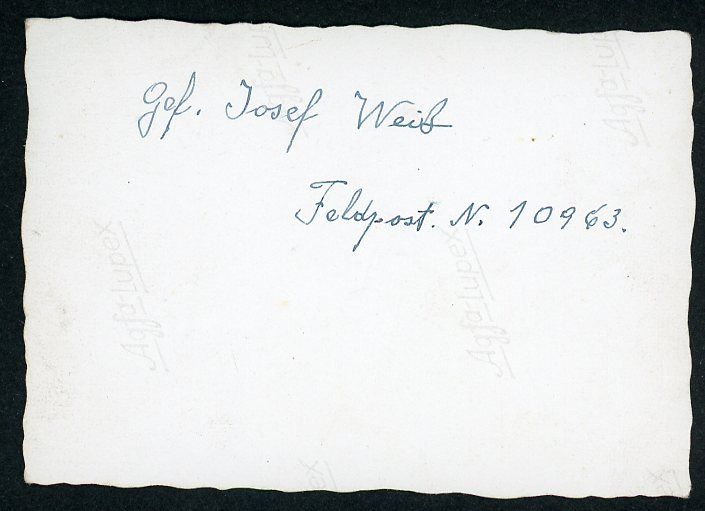 Gef. Josef Weiß
Feldpost. N. 10963.
Agfa-Lupex
Agfa-Lupex
Agfa-Lupex
Agfa-Lupex